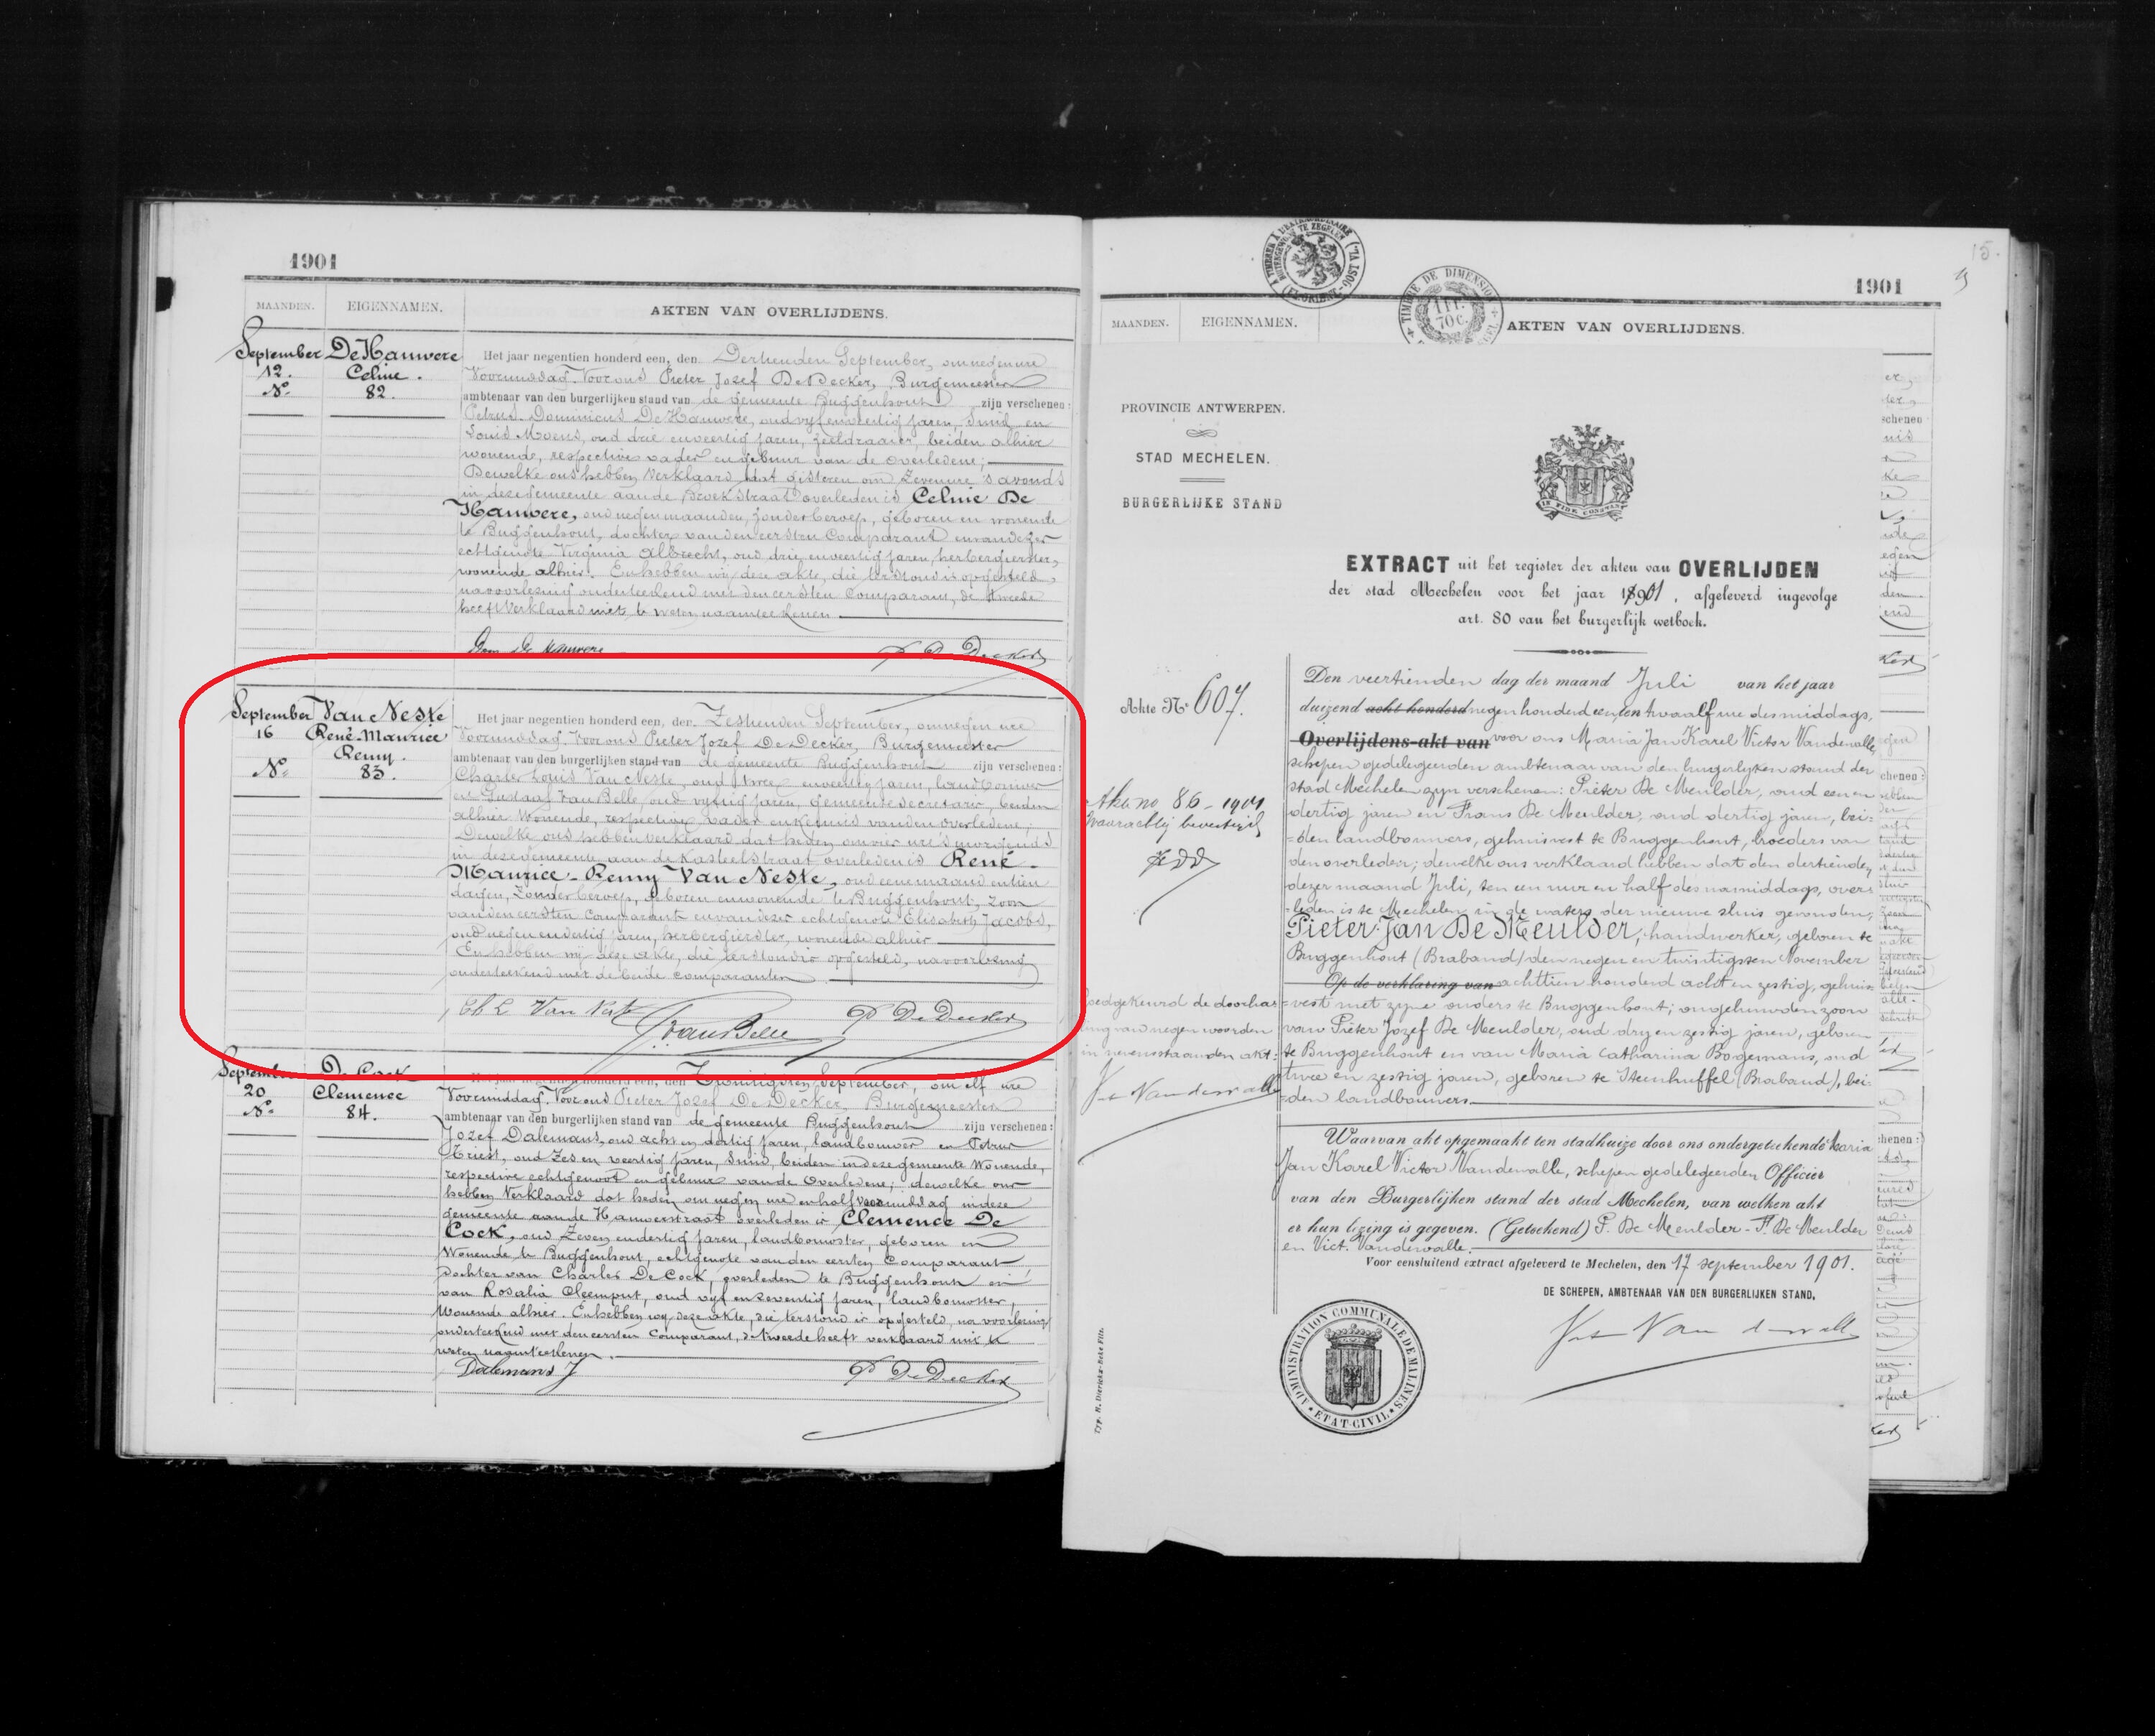 1901
MAANDEN. EIGENNAMEN. AKTEN VAN OVERLIJDENS.
September
12.
Nº
De Hauwere
Celine.
82.
Het jaar negentien honderd een, den Dertienden September, om negen ure
Voormiddag. Voor ons Pieter Jozef De Decker, Burgemeester
ambtenaar van den burgerlijken stand van de gemeente Buggenhout zijn verschenen:
Petrus Dominicus De Hauwere, oud vyf en veertig jaren, Smid en
Louis Moens, oud drie en veertig jaren, zeeldraaier, beiden alhier
wonende, respective vader en gebuur van de overledene;
Dewelke ons hebben verklaard dat gisteren om Zeven ure 's avonds
in deze gemeente aan de straat overleden is Celine De
Hauwere, oud negen maanden, zonder beroep, geboren en wonende
te Buggenhout, dochter van den eersten Comparant en van dezes
echtgenote Virginia Albrecht, oud drie en veertig jaren, herbergierster,
wonende alhier. En hebben wij deze akte, die terstond is opgesteld,
na voorlezing onderteekend met den eersten Comparant, de tweede
heeft verklaard niet te weten naamteekenen.
Dom De Hauwere P. De Decker
September
16
Nº
Van Neste
René-Maurice
Remy.
83.
Het jaar negentien honderd een, den Zestienden September, om negen ure
Voormiddag. Voor ons Pieter Jozef De Decker, Burgemeester
ambtenaar van den burgerlijken stand van de gemeente Buggenhout zijn verschenen:
Charles Louis Van Neste, oud twee en veertig jaren, landbouwer
en Gustaaf Van Belle, oud vyftig jaren, gemeentesecretaris, beiden
alhier Wonende, respective vader en kennis van den overledene;
Dewelke ons hebben verklaard dat heden om vier ure 's morgends
in deze gemeente aan de Kasteelstraat overleden is René-
Maurice-Remy Van Neste, oud eene maand en tien
dagen, Zonder beroep, geboren en wonende te Buggenhout, zoon
van den eersten Comparant en van dezes echtgenote Elisabeth Jacobs,
oud negen en dertig jaren, herbergierster, wonende alhier
En hebben wij deze akte, die terstond is opgesteld, na voorlezing
onderteekend met de beide comparanten
Ch L Van Neste G. van Belle P. De Decker
September
20
Nº
De Cock
Clemence
84.
Het jaar negentien honderd een, den Twintigsten September, om elf ure
Voormiddag. Voor ons Pieter Jozef De Decker, Burgemeester
ambtenaar van den burgerlijken stand van de gemeente Buggenhout zijn verschenen:
Jozef Dalemans, oud acht en dertig jaren, landbouwer en Petrus
Triest, oud Zes en veertig jaren, Smid, beiden in deze gemeente Wonende,
respective echtgenoot en gebuur van de Overledene; dewelke ons
hebben Verklaard dat heden om negen ure en half voormiddag in deze
gemeente aan de Hauwerstraat overleden is Clemence De
Cock, oud Zeven en dertig jaren, landbouwster, geboren en
Wonende te Buggenhout, echtgenote van den eersten Comparant
Dochter van Charles De Cock, overleden te Buggenhout en
van Rosalia Cleemput, oud vyf en zeventig jaren, landbouwster,
Wonende alhier. En hebben wy deze akte, die terstond is opgesteld, na voorlezing
onderteekend met den eersten Comparant, de tweede heeft verklaard niet te
weten naamteekenen.
Dalemans J P. De Decker
15.
1901
MAANDEN. EIGENNAMEN. AKTEN VAN OVERLIJDENS.
TIMBRE DE DIMENSION
1 FR.
70 C.
PROVINCIE ANTWERPEN.
STAD MECHELEN.
BURGERLIJKE STAND
IN FIDE CONSTANS
EXTRACT uit het register der akten van OVERLIJDEN
der stad Mechelen voor het jaar 1901, afgeleverd ingevolge
art. 80 van het burgerlijk wetboek.
Akte Nº 607.
Akte no 86 - 1901
Waarachtig bevestigd
PJDD
Den veertienden dag der maand Juli van het jaar
duizend acht honderd negen honderd een, ten twaalf ure des middags,
Overlijdens-akt van voor ons Maria Jan Karel Victor Vandewalle,
schepen gedelegeerden ambtenaar van den burgerlyken stand der
stad Mechelen zyn verschenen: Pieter De Meulder, oud een en
dertig jaren en Frans De Meulder, oud dertig jaren, bei-
=den landbouwers, gehuisvest te Buggenhout, broeders van
den overleden; dewelke ons verklaard hebben dat den dertienden
dezer maand Juli, ten een uur en half des namiddags, over=
=leden is te Mechelen, in de waters der nieuwe sluis gevonden;
Pieter-Jan De Meulder, handwerker, geboren te
Buggenhout (Braband) den negen en twintigsten November
Op de verklaring van achttien honderd acht en zestig, gehuis=
=vest met zyne ouders te Buggenhout; ongehuwden zoon
van Pieter Jozef De Meulder, oud dry en zestig jaren, geboren
te Buggenhout en van Maria Catharina Bogemans, oud
twee en zestig jaren, geboren te Steenhuffel (Braband), bei=
=den landbouwers.
Goedgekeurd de doorha=
ling van negen woorden
in nevenstaanden akt:
Vic Vandewalle
Waarvan akt opgemaakt ten stadhuize door ons ondergeteekende Maria
Jan Karel Victor Vandewalle, schepen gedelegeerden Officier
van den Burgerlijken stand der stad Mechelen, van welken akt
er hun lezing is gegeven. (Geteekend) P. De Meulder - F. De Meulder
en Vict. Vandewalle.
Voor eensluitend extract afgeleverd te Mechelen, den 17 september 1901.
DE SCHEPEN, AMBTENAAR VAN DEN BURGERLIJKEN STAND,
Vic Vandewalle
ADMINISTRATION COMMUNALE DE MALINES
ETAT-CIVIL
Typ. H. Dierickx-Beke Fils.